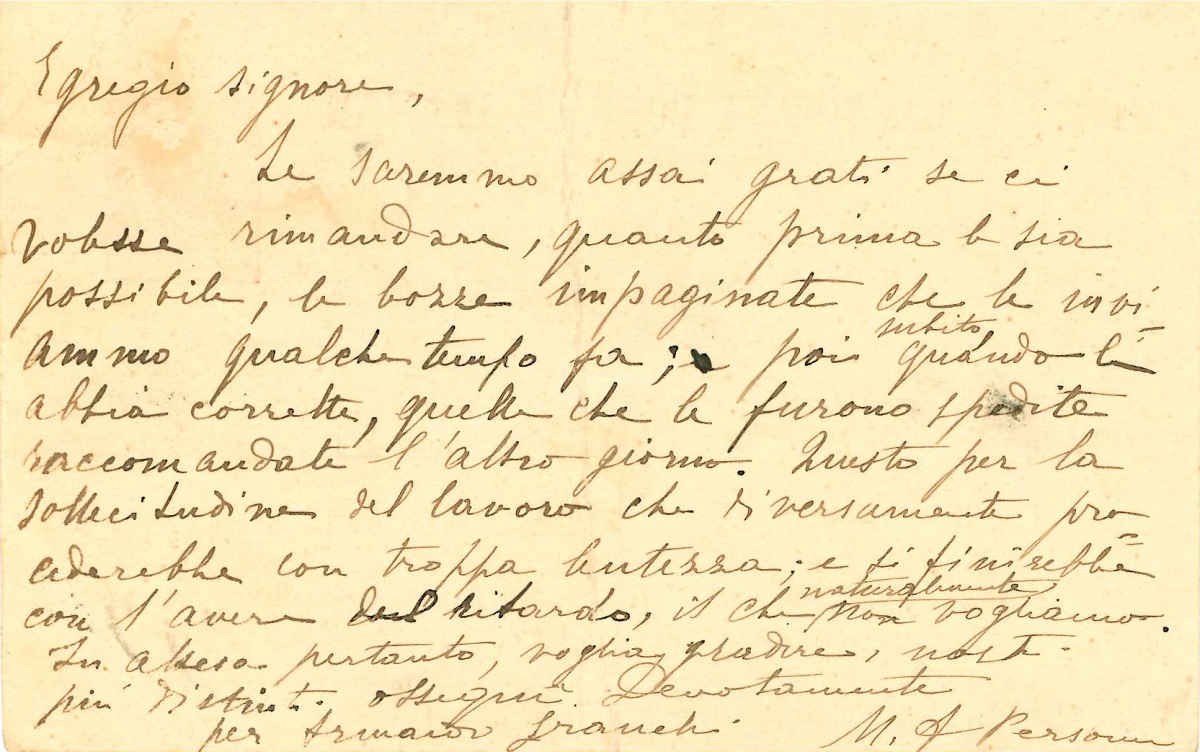 Egregio signore,
Le saremmo assai grati se ci
volesse rimandare, quanto prima le sia
possibile, le bozze impaginate che le invi
ammo qualche tempo fa; e poi subito quando le
abbia corrette, quelle che le furono spedite
raccomandate l'altro giorno. Questo per la
sollecitudine del lavoro che diversamente pro
cederebbe con troppa lentezza; e si finirebbe
con l'avere del ritardo, il che naturalmente non vogliamo.
In attesa pertanto, voglia gradire, nostri
più distinti ossequi Devotamente
per Armando M. A